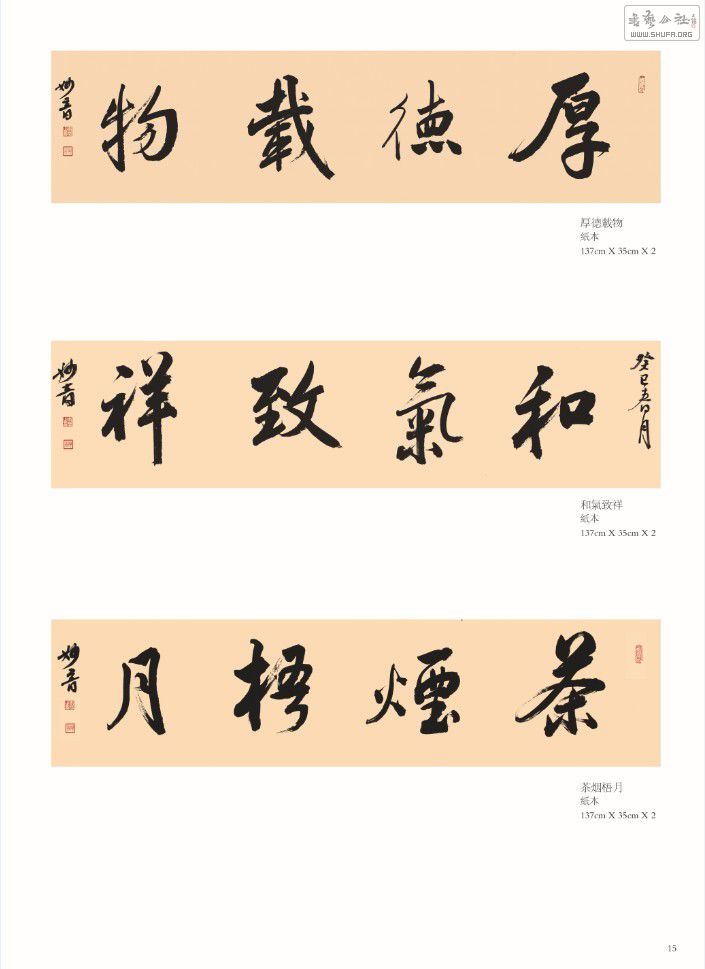 書藝公社
WWW.SHUFA.ORG
厚德載物
妙音
厚德載物
紙本
137cm X 35cm X 2
癸巳春月
和氣致祥
妙音
和氣致祥
紙本
137cm X 35cm X 2
茶煙梧月
妙音
茶烟梧月
紙本
137cm X 35cm X 2
15